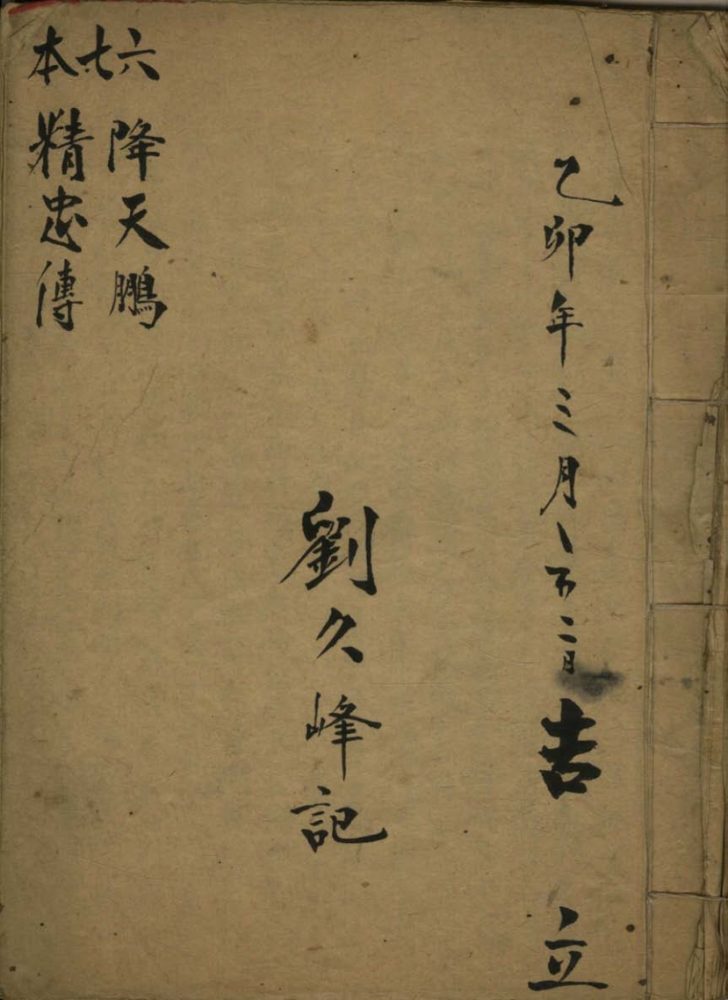 乙卯年三月
吉立
劉久峰記
六七本
降天鵬
精忠傳